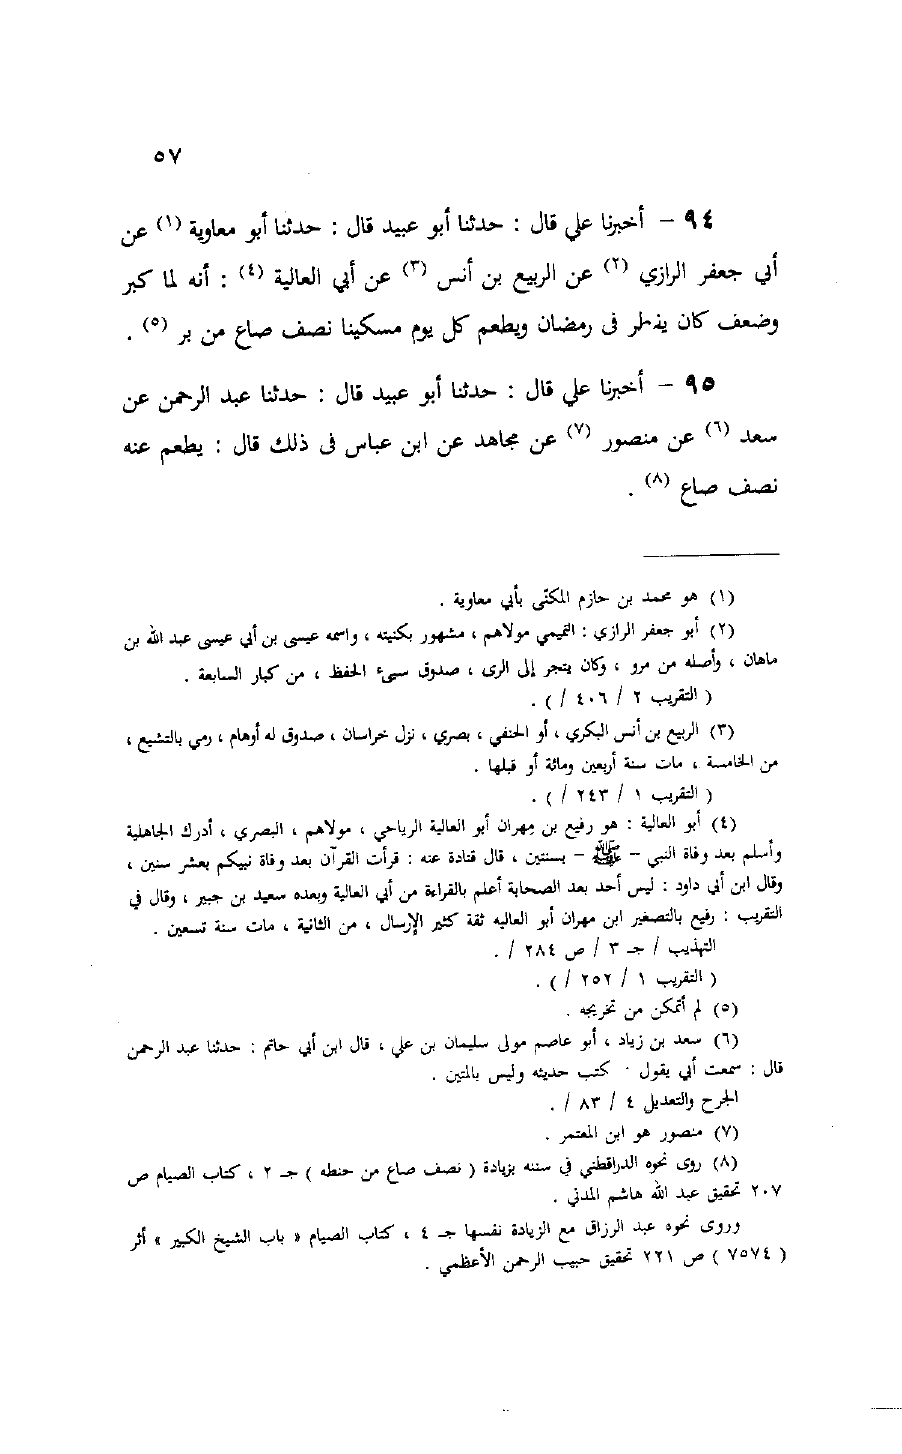 ٥٧
٩٤ - أخبرنا علي قال : حدثنا أبو عبيد قال : حدثنا أبو معاوية (١) عن
أبي جعفر الرازي (٢) عن الربيع بن أنس (٣) عن أبي العالية (٤) : أنه لما كبر
وضعف كان يفطر في رمضان ويطعم كل يوم مسكينا نصف صاع من بر (٥) .
٩٥ - أخبرنا علي قال : حدثنا أبو عبيد قال : حدثنا عبد الرحمن عن
سعد (٦) عن منصور (٧) عن مجاهد عن ابن عباس في ذلك قال : يطعم عنه
نصف صاع (٨) .
(١) هو محمد بن حازم المكنّى بأبي معاوية .
(٢) أبو جعفر الرازي : التميمي مولاهم ، مشهور بكنيته ، واسمه عيسى بن أبي عيسى عبد الله بن
ماهان ، وأصله من مرو ، وكان يتجر إلى الرى ، صدوق سيء الحفظ ، من كبار السابعة .
( التقريب ٢ / ٤٠٦ / ) .
(٣) الربيع بن أنس البكري ، أو الحنفي ، بصري ، نزل خراسان ، صدوق له أوهام ، رمي بالتشيع ،
من الخامسة ، مات سنة أربعين ومائة أو قبلها .
( التقريب ١ / ٢٤٣ / ) .
(٤) أبو العالية : هو رفيع بن مهران أبو العالية الرياحي ، مولاهم ، البصري ، أدرك الجاهلية
وأسلم بعد وفاة النبي - ﷺ - بسنتين ، قال قتادة عنه : قرأت القرآن بعد وفاة نبيكم بعشر سنين ،
وقال ابن أبي داود : ليس أحد بعد الصحابة أعلم بالقراءة من أبي العالية وبعده سعيد بن جبير ، وقال في
التقريب : رفيع بالتصغير ابن مهران أبو العاليه ثقة كثير الإرسال ، من الثانية ، مات سنة تسعين .
التهذيب / جـ ٣ / ص ٢٨٤ / .
( التقريب ١ / ٢٥٢ / ) .
(٥) لم أتمكن من تخريجه .
(٦) سعد بن زياد ، أبو عاصم مولى سليمان بن علي ، قال ابن أبي حاتم : حدثنا عبد الرحمن
قال : سمعت أبي يقول · كتب حديثه وليس بالمتين .
الجرح والتعديل ٤ / ٨٣ / .
(٧) منصور هو ابن المعتمر .
(٨) روى نحوه الدراقطني في سننه بزيادة ( نصف صاع من حنطه ) جـ ٢ ، كتاب الصيام ص
٢٠٧ تحقيق عبد الله هاشم المدني .
وروى نحوه عبد الرزاق مع الزيادة نفسها جـ ٤ ، كتاب الصيام « باب الشيخ الكبير » أثر
( ٧٥٧٤ ) ص ٢٢١ تحقيق حبيب الرحمن الأعظمي .